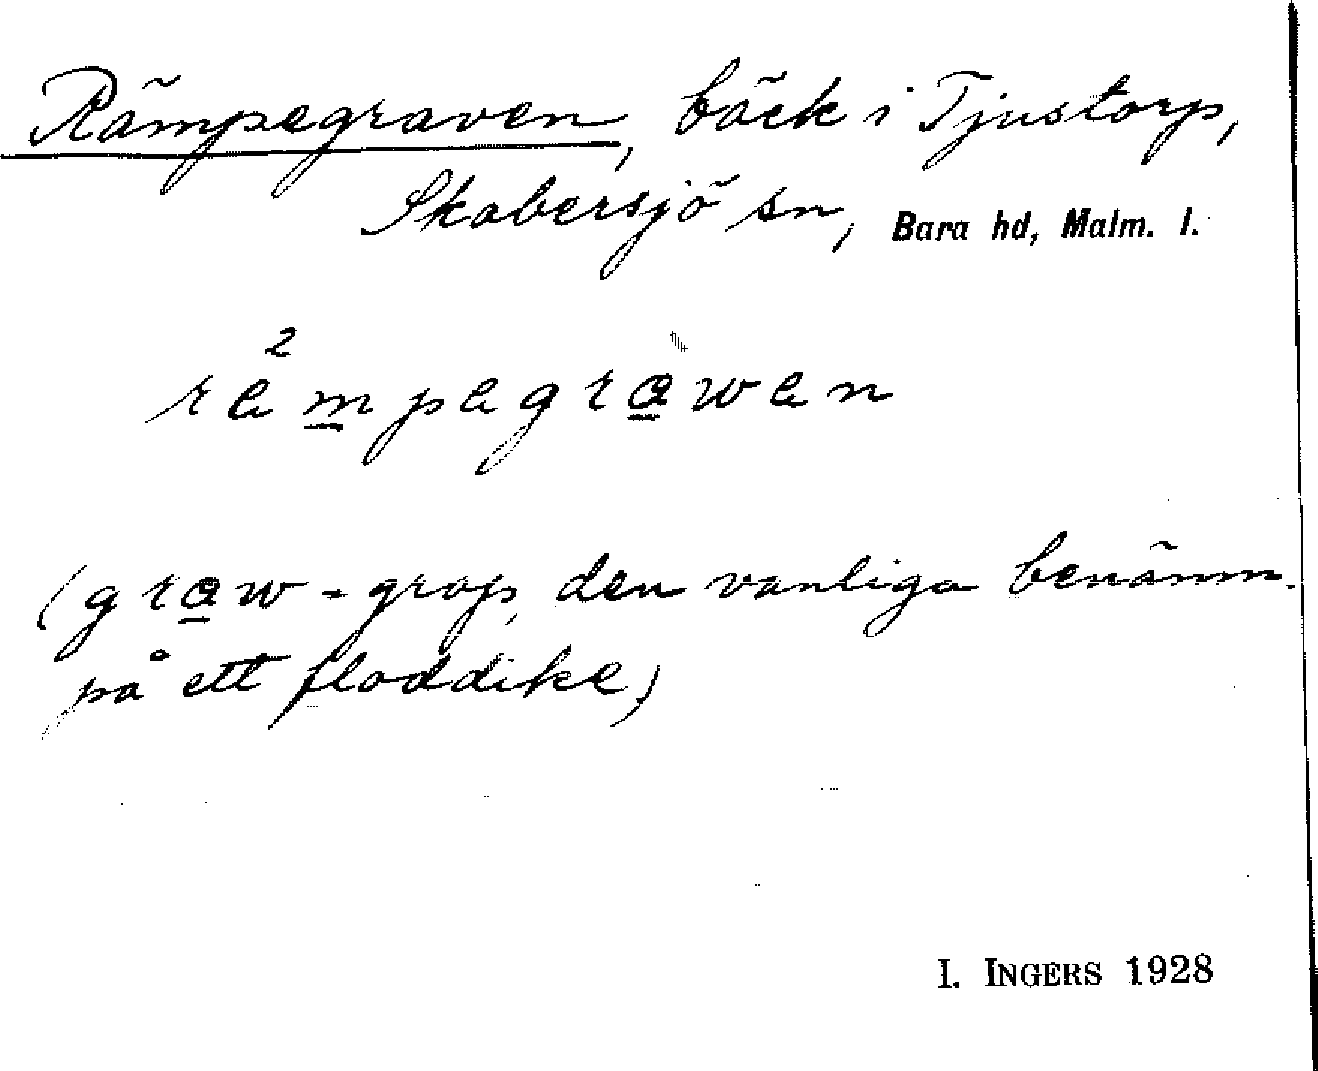 Rämpegraven, bäck i Tjustorp,
Skabersjö sn, Bara hd, Malm. l.
2
rämpegrawen
(graw = grop, den vanliga benämn.
på ett floddike)
I. INGERS 1928